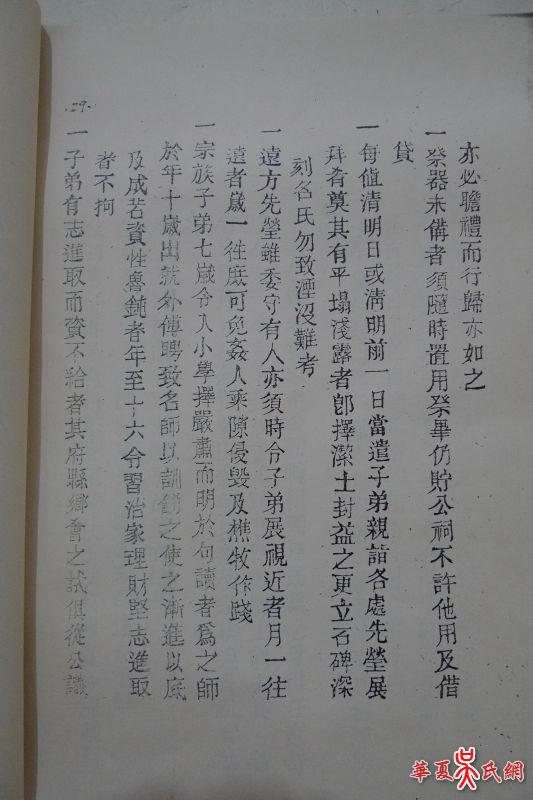 亦必瞻禮而行歸亦如之
一祭器未備者須隨時置用祭畢仍貯公祠不許他用及借
貸
一每值清明日或清明前一日當遣子弟親詣各處先塋展
拜省奠其有平塌淺露者卽擇潔土封益之更立石碑深
刻名氏勿致湮沒難考
一遠方先塋雖委守有人亦須時令子弟展視近者月一往
遠者歲一往庶可免姦人乘隙侵毀及樵牧作踐
一宗族子弟七歲令入小學擇嚴肅而明於句讀者為之師
於年十歲出就外傅聘致名師以訓飭之使之漸進以底
及成若資性魯鈍者年至十六令習治家理財堅志進取
者不拘
一子弟有志進取而資不給者其府縣鄉會之試俱從公議
29.
華夏吳氏網